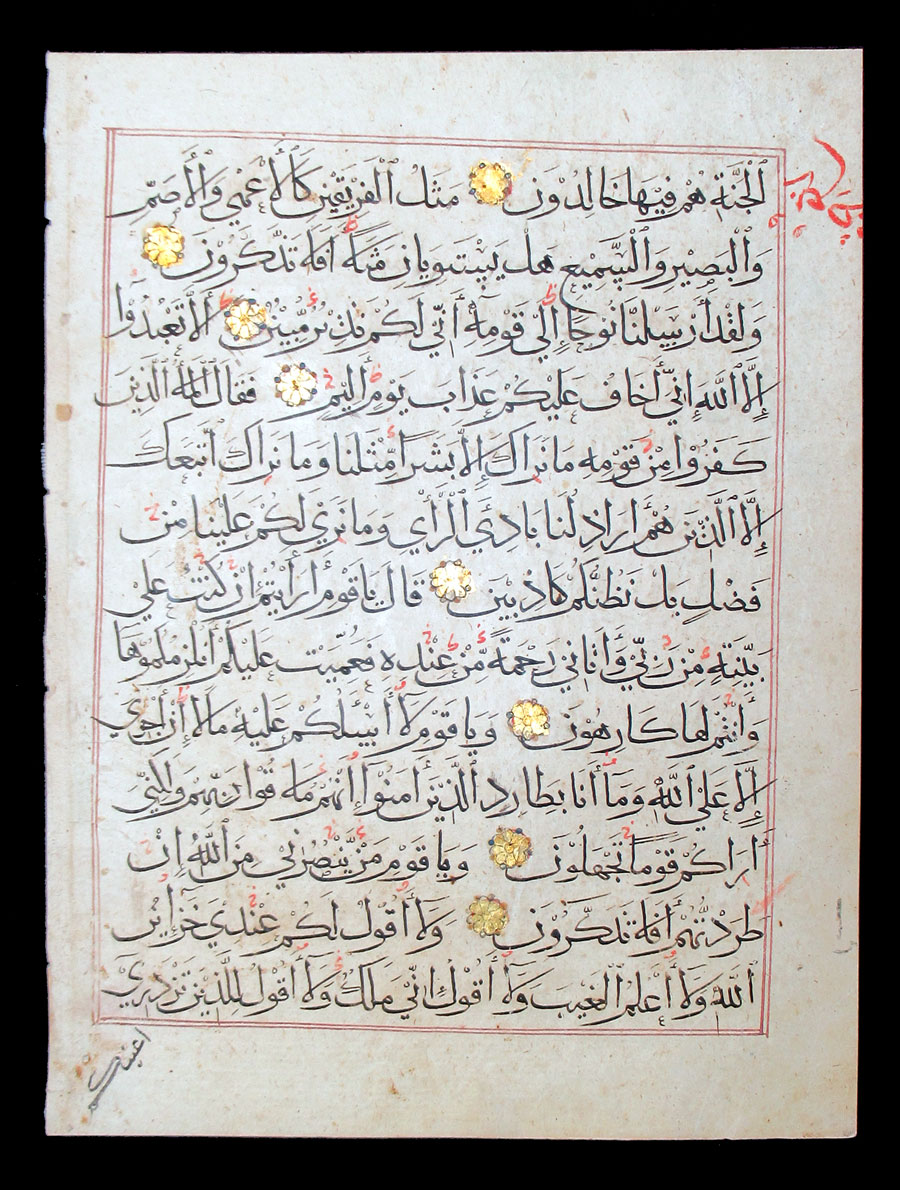 ٱلْجَنَّةِ هُمْ فِيهَا خَالِدُونَ مَثَلُ ٱلْفَرِيقَيْنِ كَٱلْأَعْمَىٰ وَٱلْأَصَمِّ
وَٱلْبَصِيرِ وَٱلسَّمِيعِ هَلْ يَسْتَوِيَانِ مَثَلًا أَفَلَا تَذَكَّرُونَ
وَلَقَدْ أَرْسَلْنَا نُوحًا إِلَىٰ قَوْمِهِ أَنِّي لَكُمْ نَذِيرٌ مُّبِينٌ أَلَّا تَعْبُدُوا
إِلَّا ٱللَّهَ إِنِّي أَخَافُ عَلَيْكُمْ عَذَابَ يَوْمٍ أَلِيمٍ فَقَالَ ٱلْمَلَأُ ٱلَّذِينَ
كَفَرُوا مِنْ قَوْمِهِ مَا نَرَاكَ إِلَّا بَشَرًا مِّثْلَنَا وَمَا نَرَاكَ ٱتَّبَعَكَ
إِلَّا ٱلَّذِينَ هُمْ أَرَاذِلُنَا بَادِيَ ٱلرَّأْيِ وَمَا نَرَىٰ لَكُمْ عَلَيْنَا مِنْ
فَضْلٍ بَلْ نَظُنُّكُمْ كَاذِبِينَ قَالَ يَا قَوْمِ أَرَأَيْتُمْ إِنْ كُنْتُ عَلَىٰ
بَيِّنَةٍ مِنْ رَبِّي وَآتَانِي رَحْمَةً مِّنْ عِنْدِهِ فَعُمِّيَتْ عَلَيْكُمْ أَنُلْزِمُكُمُوهَا
وَأَنْتُمْ لَهَا كَارِهُونَ وَيَا قَوْمِ لَا أَسْـَٔلُكُمْ عَلَيْهِ مَالًا إِنْ أَجْرِيَ
إِلَّا عَلَى ٱللَّهِ وَمَا أَنَا بِطَارِدِ ٱلَّذِينَ آمَنُوا إِنَّهُمْ مُلَاقُوا رَبِّهِمْ وَلَٰكِنِّي
أَرَاكُمْ قَوْمًا تَجْهَلُونَ وَيَا قَوْمِ مَنْ يَّنْصُرُنِي مِنَ ٱللَّهِ إِنْ
طَرَدْتُهُمْ أَفَلَا تَذَكَّرُونَ وَلَا أَقُولُ لَكُمْ عِنْدِي خَزَائِنُ
ٱللَّهِ وَلَا أَعْلَمُ ٱلْغَيْبَ وَلَا أَقُولُ إِنِّي مَلَكٌ وَلَا أَقُولُ لِلَّذِينَ تَزْدَرِي
اعينكم